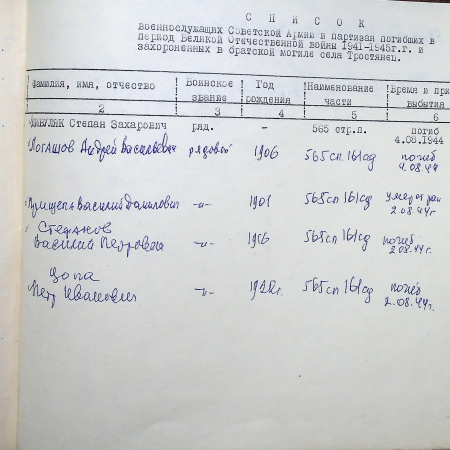 С П И С О К
военнослужащих Советской Армии и партизан погибших в
период Великой Отечественной войны 1941-1945г.г. и
захороненных в братской могиле села Тростянец.
Фамилия, имя, отчество Воинское звание Год рождения Наименование части Время и при
выбытия
2 3 4 5 6
Степан Захарович ряд. - 565 стр.п. погиб
4.08.1944
Логашов Андрей Васильевич рядовой 1906 565сп 161сд погиб
4.08.44
Прищепа Василий Данилович -"- 1901 565сп 161сд умер от ран
2.08.44г.
Степанов
Василий Петрович -"- 565сп 161сд погиб
2.08.44г.
Цопа
Петр Иванович -"- 565сп 161сд погиб
2.08.44г.